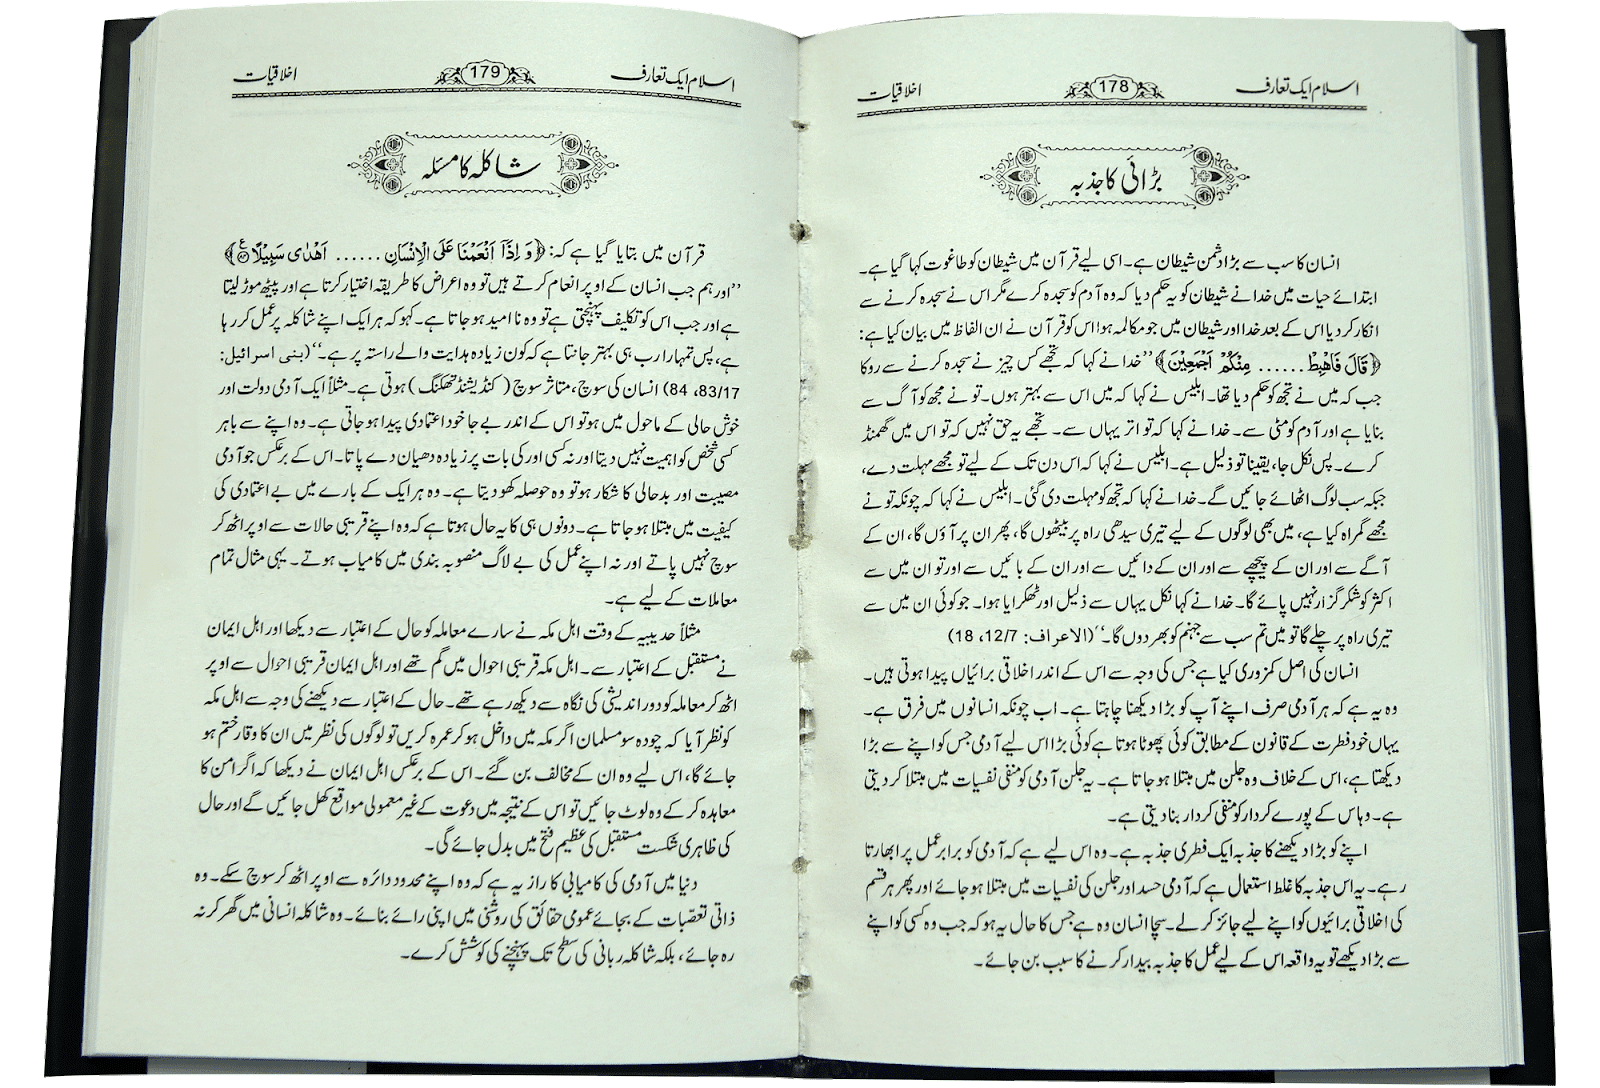 اسلام ایک تعارف 178 اخلاقیات
بڑائی کا جذبہ
انسان کا سب سے بڑا دشمن شیطان ہے۔ اسی لیے قرآن میں شیطان کو طاغوت کہا گیا ہے۔
ابتدائے حیات میں خدا نے شیطان کو یہ حکم دیا کہ وہ آدم کو سجدہ کرے مگر اس نے سجدہ کرنے سے
انکار کر دیا اس کے بعد خدا اور شیطان میں جو مکالمہ ہوا اس کو قرآن نے ان الفاظ میں بیان کیا ہے:
﴿قَالَ فَاهْبِطْ ...... مِنْكُمْ اَجْمَعِيْنَ﴾ ’’خدا نے کہا کہ تجھے کس چیز نے سجدہ کرنے سے روکا
جب کہ میں نے تجھ کو حکم دیا تھا۔ ابلیس نے کہا کہ میں اس سے بہتر ہوں۔ تو نے مجھ کو آگ سے
بنایا ہے اور آدم کو مٹی سے۔ خدا نے کہا کہ تو اتر یہاں سے۔ تجھے یہ حق نہیں کہ تو اس میں گھمنڈ
کرے۔ پس نکل جا، یقینا تو ذلیل ہے۔ ابلیس نے کہا کہ اس دن تک کے لیے تو مجھے مہلت دے،
جبکہ سب لوگ اٹھائے جائیں گے۔ خدا نے کہا کہ تجھ کو مہلت دی گئی۔ ابلیس نے کہا کہ چونکہ تو نے
مجھے گمراہ کیا ہے، میں بھی لوگوں کے لیے تیری سیدھی راہ پر بیٹھوں گا، پھر ان پر آؤں گا، ان کے
آگے سے اور ان کے پیچھے سے اور ان کے دائیں سے اور ان کے بائیں سے اور تو ان میں سے
اکثر کو شکر گزار نہیں پائے گا۔ خدا نے کہا نکل یہاں سے ذلیل اور ٹھکرایا ہوا۔ جو کوئی ان میں سے
تیری راہ پر چلے گا تو میں تم سب سے جہنم کو بھر دوں گا۔‘‘ (الاعراف: 12/7، 18)
انسان کی اصل کمزوری کیا ہے جس کی وجہ سے اس کے اندر اخلاقی برائیاں پیدا ہوتی ہیں۔
وہ یہ ہے کہ ہر آدمی صرف اپنے آپ کو بڑا دیکھنا چاہتا ہے۔ اب چونکہ انسانوں میں فرق ہے۔
یہاں خود فطرت کے قانون کے مطابق کوئی چھوٹا ہوتا ہے کوئی بڑا اس لیے آدمی جس کو اپنے سے بڑا
دیکھتا ہے، اس کے خلاف وہ جلن میں مبتلا ہو جاتا ہے۔ یہ جلن آدمی کو منفی نفسیات میں مبتلا کر دیتی
ہے۔ وہ اس کے پورے کردار کو منفی کردار بنا دیتی ہے۔
اپنے کو بڑا دیکھنے کا جذبہ ایک فطری جذبہ ہے۔ وہ اس لیے ہے کہ آدمی کو برابر عمل پر ابھارتا
رہے۔ یہ اس جذبہ کا غلط استعمال ہے کہ آدمی حسد اور جلن کی نفسیات میں مبتلا ہو جائے اور پھر ہر قسم
کی اخلاقی برائیوں کو اپنے لیے جائز کر لے۔ سچا انسان وہ ہے جس کا حال یہ ہو کہ جب وہ کسی کو اپنے
سے بڑا دیکھے تو یہ واقعہ اس کے لیے عمل کا جذبہ بیدار کرنے کا سبب بن جائے۔
اسلام ایک تعارف 179 اخلاقیات
شاکلہ کا مسئلہ
قرآن میں بتایا گیا ہے کہ: ﴿وَ اِذَآ اَنْعَمْنَا عَلَى الْاِنْسَانِ ...... اَهْدٰى سَبِيْلًا﴾
’’اور ہم جب انسان کے اوپر انعام کرتے ہیں تو وہ اعراض کا طریقہ اختیار کرتا ہے اور پیٹھ موڑ لیتا
ہے اور جب اس کو تکلیف پہنچتی ہے تو وہ نا امید ہو جاتا ہے۔ کہو کہ ہر ایک اپنے شاکلہ پر عمل کر رہا
ہے، پس تمہارا رب ہی بہتر جانتا ہے کہ کون زیادہ ہدایت والے راستہ پر ہے۔‘‘ (بنی اسرائیل:
83/17، 84) انسان کی سوچ، متاثر سوچ (کنڈیشنڈ تھنکنگ) ہوتی ہے۔ مثلاً ایک آدمی دولت اور
خوش حالی کے ماحول میں ہو تو اس کے اندر بے جا خود اعتمادی پیدا ہو جاتی ہے۔ وہ اپنے سے باہر
کسی شخص کو اہمیت نہیں دیتا اور نہ کسی اور کی بات پر زیادہ دھیان دے پاتا۔ اس کے برعکس جو آدمی
مصیبت اور بدحالی کا شکار ہو تو وہ حوصلہ کھو دیتا ہے۔ وہ ہر ایک کے بارے میں بے اعتمادی کی
کیفیت میں مبتلا ہو جاتا ہے۔ دونوں ہی کا یہ حال ہوتا ہے کہ وہ اپنے قریبی حالات سے اوپر اٹھ کر
سوچ نہیں پاتے اور نہ اپنے عمل کی بے لاگ منصوبہ بندی میں کامیاب ہوتے۔ یہی مثال تمام
معاملات کے لیے ہے۔
مثلاً حدیبیہ کے وقت اہل مکہ نے سارے معاملہ کو حال کے اعتبار سے دیکھا اور اہل ایمان
نے مستقبل کے اعتبار سے۔ اہل مکہ قریبی احوال میں گم تھے اور اہل ایمان قریبی احوال سے اوپر
اٹھ کر معاملہ کو دور اندیشی کی نگاہ سے دیکھ رہے تھے۔ حال کے اعتبار سے دیکھنے کی وجہ سے اہل مکہ
کو نظر آیا کہ چودہ سو مسلمان اگر مکہ میں داخل ہو کر عمرہ کریں تو لوگوں کی نظر میں ان کا وقار ختم ہو
جائے گا، اس لیے وہ ان کے مخالف بن گئے۔ اس کے برعکس اہل ایمان نے دیکھا کہ اگر امن کا
معاہدہ کر کے وہ لوٹ جائیں تو اس کے نتیجہ میں دعوت کے غیر معمولی مواقع کھل جائیں گے اور حال
کی ظاہری شکست مستقبل کی عظیم فتح میں بدل جائے گی۔
دنیا میں آدمی کی کامیابی کا راز یہ ہے کہ وہ اپنے محدود دائرہ سے اوپر اٹھ کر سوچ سکے۔ وہ
ذاتی تعصّبات کے بجائے عمومی حقائق کی روشنی میں اپنی رائے بنائے۔ وہ شاکلہ انسانی میں گھر کر نہ
رہ جائے، بلکہ شاکلہ ربانی کی سطح تک پہنچنے کی کوشش کرے۔